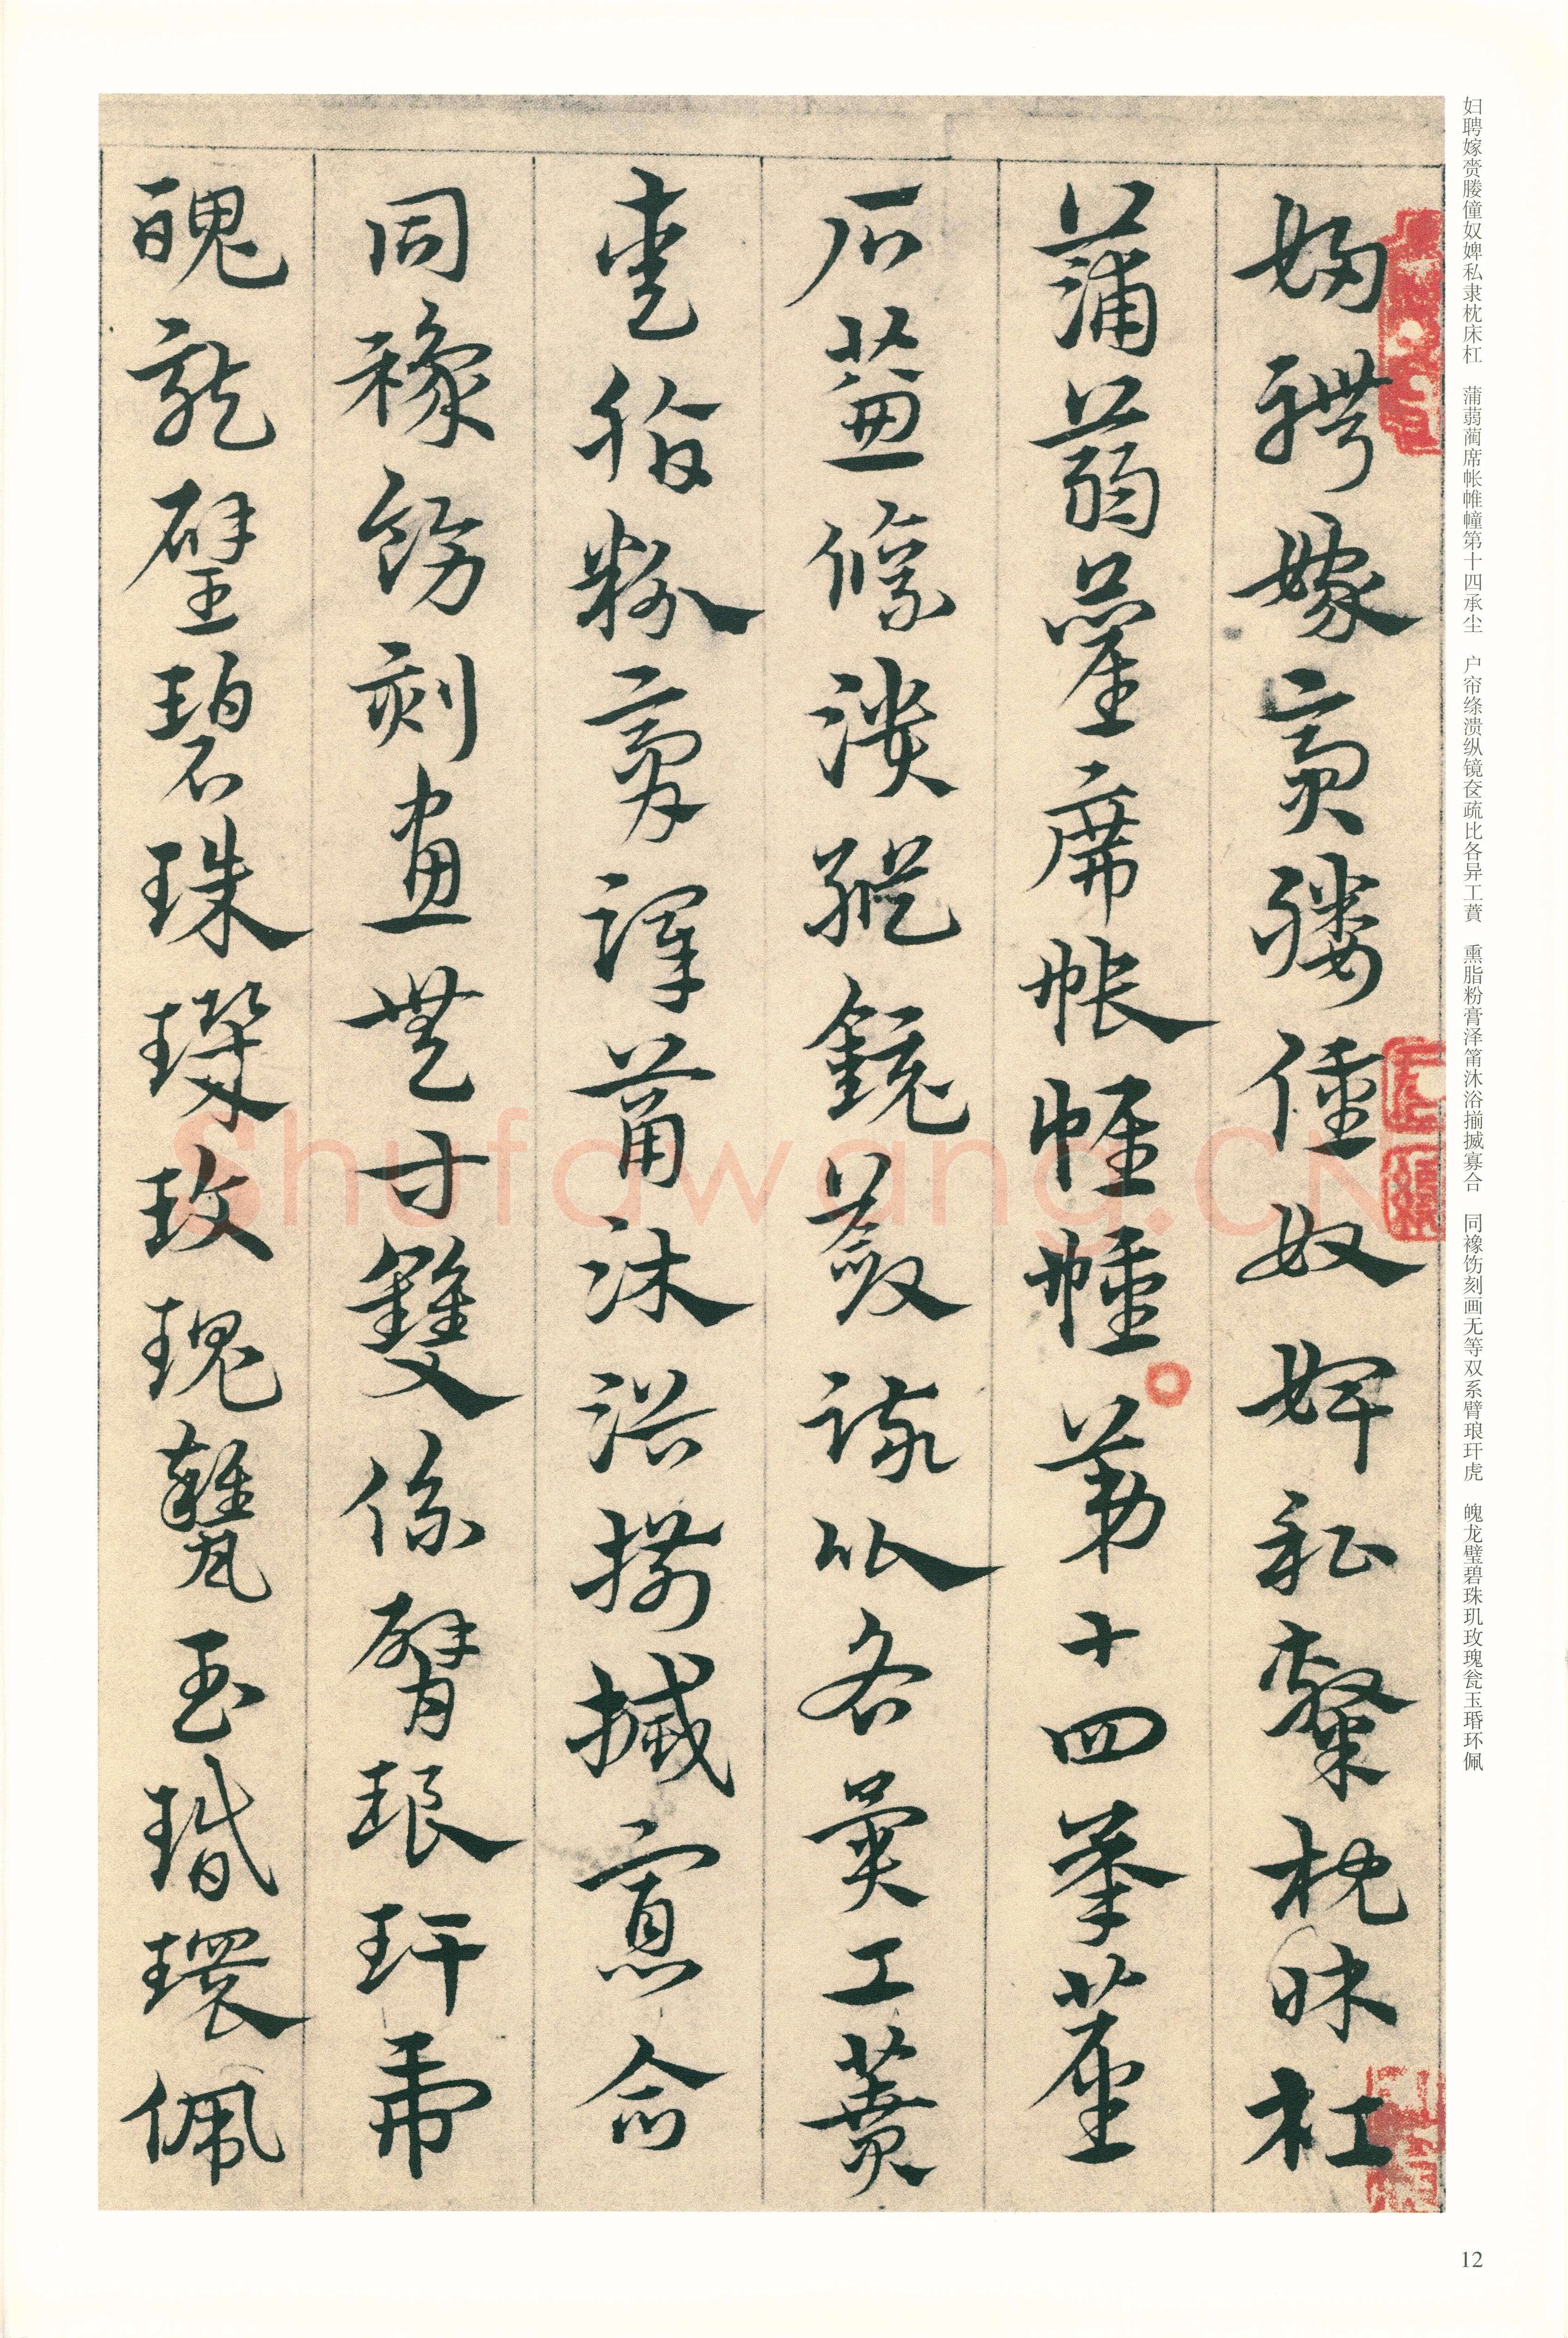 妇聘嫁赍媵僮奴婢私隶枕床杠　蒲蒻蔺席帐帷幢第十四承尘　户帘绦溃纵镜奁疏比各异工蕡　熏脂粉膏泽筩沐浴揃搣寡合　同襐饬刻画无等双系臂琅玕虎　魄龙璧碧珠玑玫瑰瓮玉瑉环佩
婦聘嫁齎媵僮奴婢私隸枕牀杠
蒲蒻藺席帳帷幢第十四承塵
戶簾絛潰縱鏡奩疏比各異工蕡
熏脂粉膏澤筩沐浴揃搣寡合
同襐飭刻畫無等雙係臂琅玕虎
魄龍璧碧珠璣玫瑰甕玉瑉環佩
Shufawang.CN
12